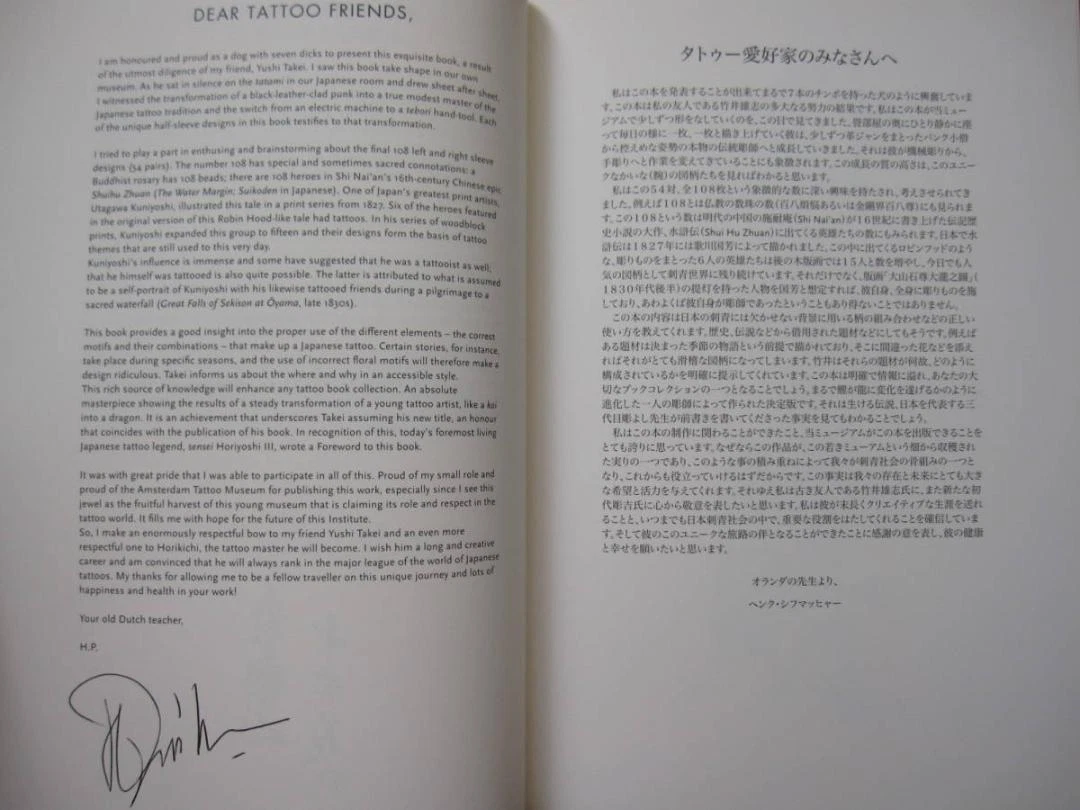 DEAR TATTOO FRIENDS,
I am honoured and proud as a dog with seven dicks to present this exquisite book, a result
of the utmost diligence of my friend, Yushi Takei. I saw this book take shape in our own
museum. As he sat in silence on the tatami in our Japanese room and drew sheet after sheet,
I witnessed the transformation of a black-leather-clad punk into a true modest master of the
Japanese tattoo tradition and the switch from an electric machine to a tebori hand-tool. Each
of the unique half-sleeve designs in this book testifies to that transformation.
I tried to play a part in enthusing and brainstorming about the final 108 left and right sleeve
designs (54 pairs). The number 108 has special and sometimes sacred connotations: a
Buddhist rosary has 108 beads; there are 108 heroes in Shi Nai'an's 16th-century Chinese epic
Shuihu Zhuan (The Water Margin; Suikoden in Japanese). One of Japan's greatest print artists,
Utagawa Kuniyoshi, illustrated this tale in a print series from 1827. Six of the heroes featured
in the original version of this Robin Hood-like tale had tattoos. In his series of woodblock
prints, Kuniyoshi expanded this group to fifteen and their designs form the basis of tattoo
themes that are still used to this very day.
Kuniyoshi's influence is immense and some have suggested that he was a tattooist as well;
that he himself was tattooed is also quite possible. The latter is attributed to what is assumed
to be a self-portrait of Kuniyoshi with his likewise tattooed friends during a pilgrimage to a
sacred waterfall (Great Falls of Sekison at Ōyama, late 1830s).
This book provides a good insight into the proper use of the different elements – the correct
motifs and their combinations – that make up a Japanese tattoo. Certain stories, for instance,
take place during specific seasons, and the use of incorrect floral motifs will therefore make a
design ridiculous. Takei informs us about the where and why in an accessible style.
This rich source of knowledge will enhance any tattoo book collection. An absolute
masterpiece showing the results of a steady transformation of a young tattoo artist, like a koi
into a dragon. It is an achievement that underscores Takei assuming his new title, an honour
that coincides with the publication of his book. In recognition of this, today's foremost living
Japanese tattoo legend, sensei Horiyoshi III, wrote a Foreword to this book.
It was with great pride that I was able to participate in all of this. Proud of my small role and
proud of the Amsterdam Tattoo Museum for publishing this work, especially since I see this
jewel as the fruitful harvest of this young museum that is claiming its role and respect in the
tattoo world. It fills me with hope for the future of this Institute.
So, I make an enormously respectful bow to my friend Yushi Takei and an even more
respectful one to Horikichi, the tattoo master he will become. I wish him a long and creative
career and am convinced that he will always rank in the major league of the world of Japanese
tattoos. My thanks for allowing me to be a fellow traveller on this unique journey and lots of
happiness and health in your work!
Your old Dutch teacher,
H.P.
タトゥー愛好家のみなさんへ
私はこの本を発表することが出来てまるで7本のチンポを持った犬のように興奮していま
す。この本は私の友人である竹井雄志の多大なる努力の結果です。私はこの本が当ミュー
ジアムで少しずつ形をなしていくのを、この目で見てきました。畳部屋の奥にひとり静かに座
って毎日の様に一枚、一枚と描き上げていく彼は、少しずつ革ジャンをまとったパンク小僧
から控えめな姿勢の本物の伝統彫師へと成長していきました。それは彼が機械彫りから、
手彫りへと作業を変えてきていることにも象徴されます。この成長の質の高さは、このユニー
クなかいな(腕)の図柄たちを見ればわかると思います。
私はこの54対、全108枚という象徴的な数に深い興味を持たされ、考えさせられてき
ました。例えば108とは仏教の数珠の数(百八煩悩あるいは金剛界百八尊)にも見られま
す。この108という数は明代の中国の施耐庵(Shi Nai'an)が16世紀に書き上げた伝記歴
史小説の大作、水滸伝(Shui Hu Zhuan)に出てくる英雄たちの数にもみられます。日本で水
滸伝は1827年には歌川国芳によって描かれました。この中に出てくるロビンフッドのよう
な、彫りものをまとった6人の英雄たちは後の木版画では15人と数を増やし、今日でも人
気の図柄として刺青世界に残り続けています。それだけでなく、版画「大山石尊大瀧之圖」
(1830年代後半)の提灯を持った人物を国芳と想定すれば、彼自身、全身に彫りものを施
しており、あわよくば彼自身が彫師であったということもあり得ないことではありません。
この本の内容は日本の刺青には欠かせない背景に用いる柄の組み合わせなどの正しい
使い方を教えてくれます。歴史、伝説などから借用された題材などにしてもそうです。例えば
ある題材は決まった季節の物語という前提で描かれており、そこに間違った花などを添え
ればそれがとても滑稽な図柄になってしまいます。竹井はそれらの題材が何故、どのように
構成されているかを明確に提示してくれています。この本は明確で情報に溢れ、あなたの大
切なブックコレクションの一つとなることでしょう。まるで鯉が龍に変化を遂げるかのように
進化した一人の彫師によって作られた決定版です。それは生ける伝説、日本を代表する三
代目彫よし先生が前書きを書いてくださった事実を見てもわかることでしょう。
私はこの本の制作に関わることができたこと、当ミュージアムがこの本を出版できることを
とても誇りに思っています。なぜならこの作品が、この若きミューアムという畑から収穫され
た実りの一つであり、このような事の積み重ねによって我々が刺青社会の骨組みの一つと
なり、これからも役立っていけるはずだからです。この事実は我々の存在と未来にとても大き
な希望と活力を与えてくれます。それゆえ私は古き友人である竹井雄志氏に、また新たな初
代彫吉氏に心から敬意を表したいと思います。私は彼が末長くクリエイティブな生涯を送れ
ることと、いつまでも日本刺青社会の中で、重要な役割をはたしてくれることを確信していま
す。そして彼のこのユニークな旅路の伴となることができたことに感謝の意を表し、彼の健康
と幸せを願いたいと思います。
オランダの先生より、
ヘンク・シフマッヒャー